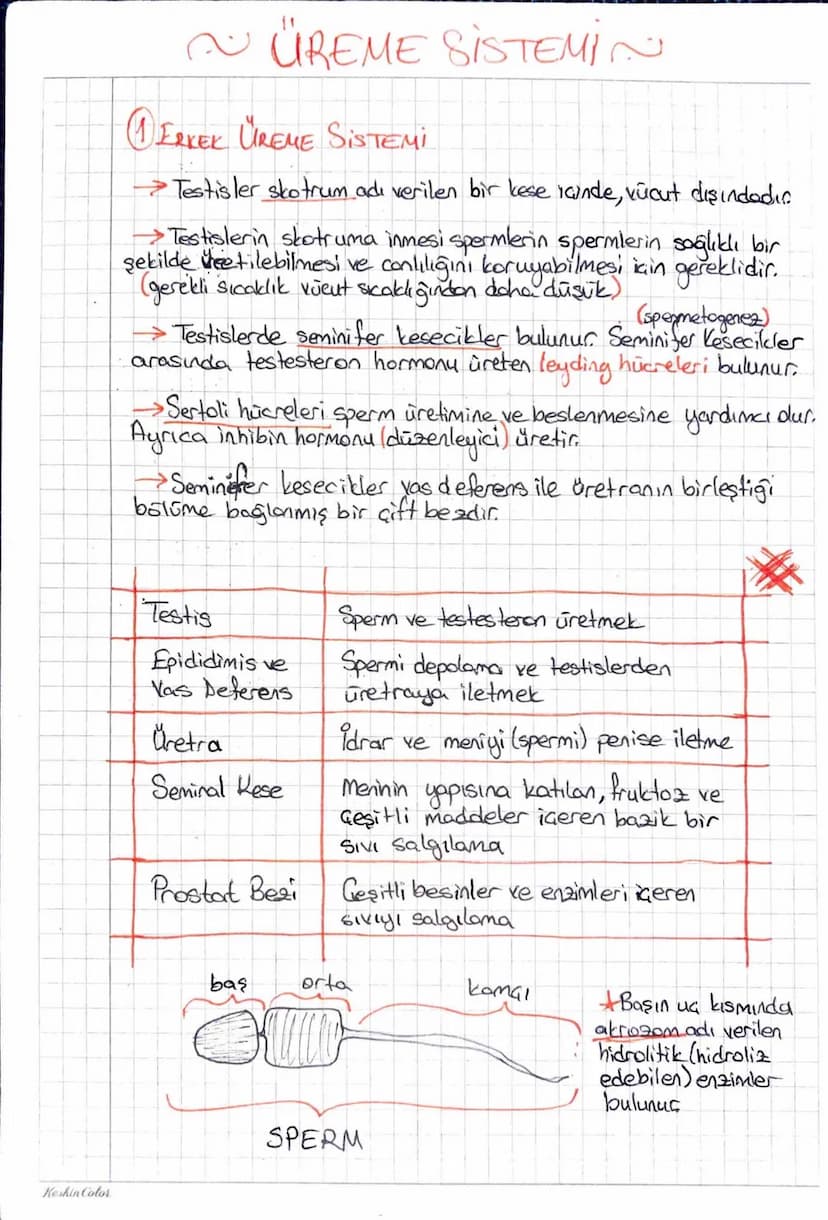 ~ ÜREME SİSTEMİ ~
① ERKEK ÜREME SİSTEMİ
→ Testisler skotrum adı verilen bir kese içinde, vücut dışındadır.
→ Testislerin skotruma inmesi spermlerin spermlerin sağlıklı bir
şekilde üretilebilmesi ve canlılığını koruyabilmesi için gereklidir.
(gerekli sıcaklık vücut sıcaklığından daha düşük)
(spermetogenez)
→ Testislerde seminifer kesecikler bulunur. Seminifer Kesecikler
arasında testesteron hormonu üreten leyding hücreleri bulunur.
→ Sertoli hücreleri sperm üretimine ve beslenmesine yardımcı olur.
Ayrıca inhibin hormonu (düzenleyici) üretir.
→ Seminifer kesecikler vas deferens ile üretranın birleştiği
bölüme bağlanmış bir çift bezdir.
Testis
Sperm ve testesteron üretmek
Epididimis ve
Vas Deferens
Spermi depolama ve testislerden
üretraya iletmek
Üretra
İdrar ve meniyi (spermi) penise iletme
Seminal Kese
Meninin yapısına katılan, fruktoz ve
çeşitli maddeler içeren bazik bir
sıvı salgılama
Prostat Bezi
Çeşitli besinler ve enzimleri içeren
sıvıyı salgılama
baş
orta
kamçı
SPERM
★ Başın uç kısmında
akrozom adı verilen
hidrolitik (hidroliz
edebilen) enzimler
bulunur
Keskin Color